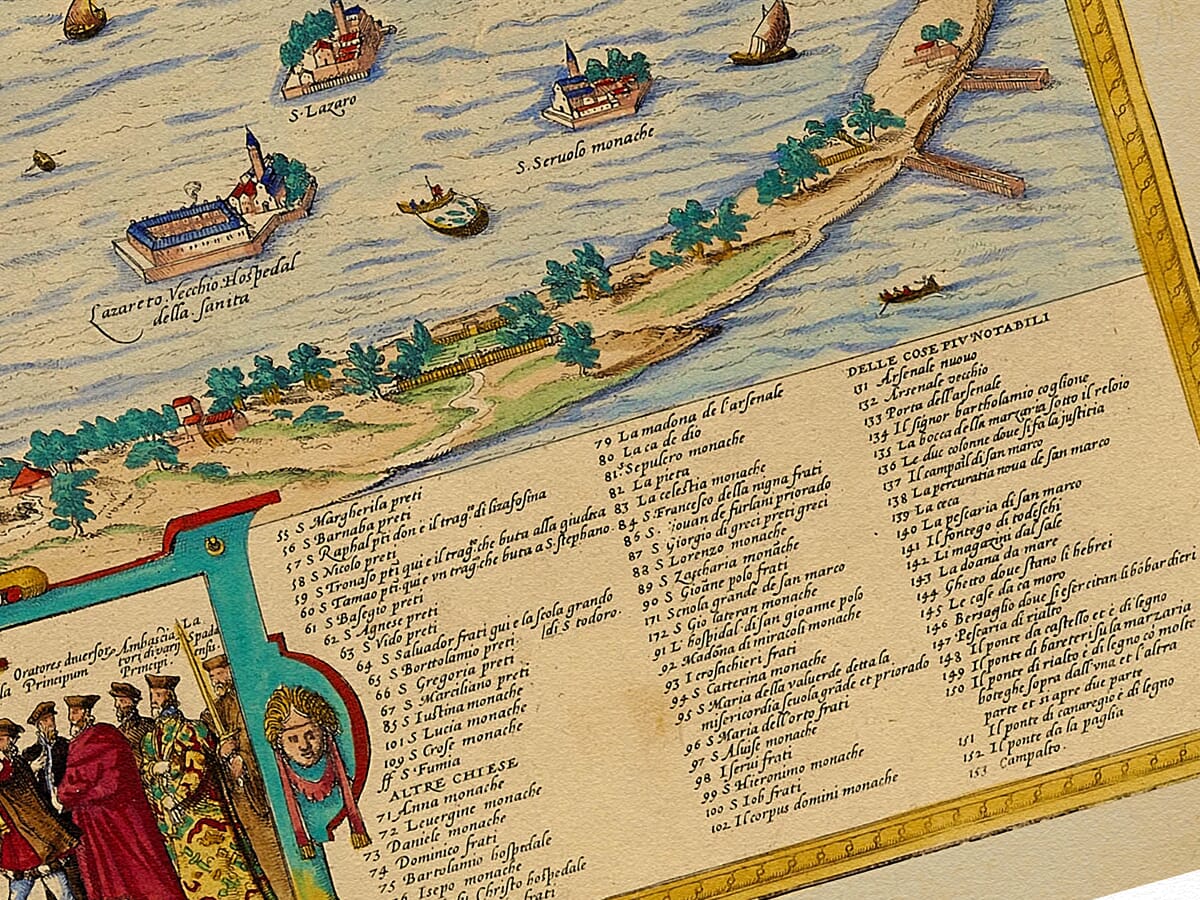 S. Lazaro
S. Seruolo monache
Lazareto Vecchio Hospedal
della sanita
Oratores diuersor
Principum
Ambascia
tori di varij
Principi
La
Spada
ensis
55 S Margherila preti
56 S Barnaba preti
57 S Raphal pti don e il trag.º di lizafosina
58 S Nicolo preti
59 S Tronaso pti qui e il trag.º che buta alla giudeca
60 S Tamao pti qui e vn trag.º che buta a S. stephano.
61 S Basegio preti
62 S Agnese preti
63 S Vido preti
64 S Saluador frati qui e la scola grando
di S todoro.
65 S Borttolamio preti
66 S Gregoria preti
67 S Marciliano preti
85 S Iustina monache
101 S Lucia monache
109 S Crose monache
ff S Fumia
ALTRE CHIESE
71 Anna monache
72 Leuergine monache
73 Daniele monache
74 Dominico frati
75 Bartolamio hospedale
76 Isepo monache
Christo hospedale
frati
79 La madona de l'arsenale
80 La ca de dio
81 Sepulcro monache
82 La pieta
83 La celestia monache
84 S Francesco della nigna frati
86 S. jouan de furlani priorado
87 S Giorgio di greci preti greci
88 S Lorenzo monache
89 S Zaccharia monache
90 S Gioane polo frati
171 Scuola grande de san marco
172 S Gio latteran monache
91 L' hospidal di san gioanne polo
92 Madona di miracoli monache
93 I crosachieri frati
94 S Catterina monache
95 S Maria della valuerde detta la
misericordia scuola grade et priorado
96 S Maria dell'orto frati
97 S Aluise monache
98 I serui frati
99 S Hieronimo monache
100 S Iob frati
102 Il corpus domini monache
DELLE COSE PIV NOTABILI
131 Arsenale nuouo
132 Arsenale vecchio
133 Porta dell'arsenale
134 Il signor bartholamio coglione
135 La bocca della marzaria sotto il reloio
136 Le due colonne doue si fa la justicia
137 Il campail di san marco
138 La percuratia noua de san marco
139 La ceca
140 La pescaria di san marco
141 Il fontego di todeschi
142 Li magazini dal sale
143 La doana da mare
144 Ghetto doue stano li hebrei
145 Le case da ca moro
146 Bersaglio doue si esercitan li bōbardieri
147 Pescaria di rialto
148 Il ponte da castello et è di legno
149 Il ponte di bareteri su la marzaria
150 Il ponte di rialto è di legno cō molte
boteghe sopra dall'vna et l'altra
parte et si apre due parte
151 Il ponte di canaregio è di legno
152 Il ponte da la paglia
153 Campalto.